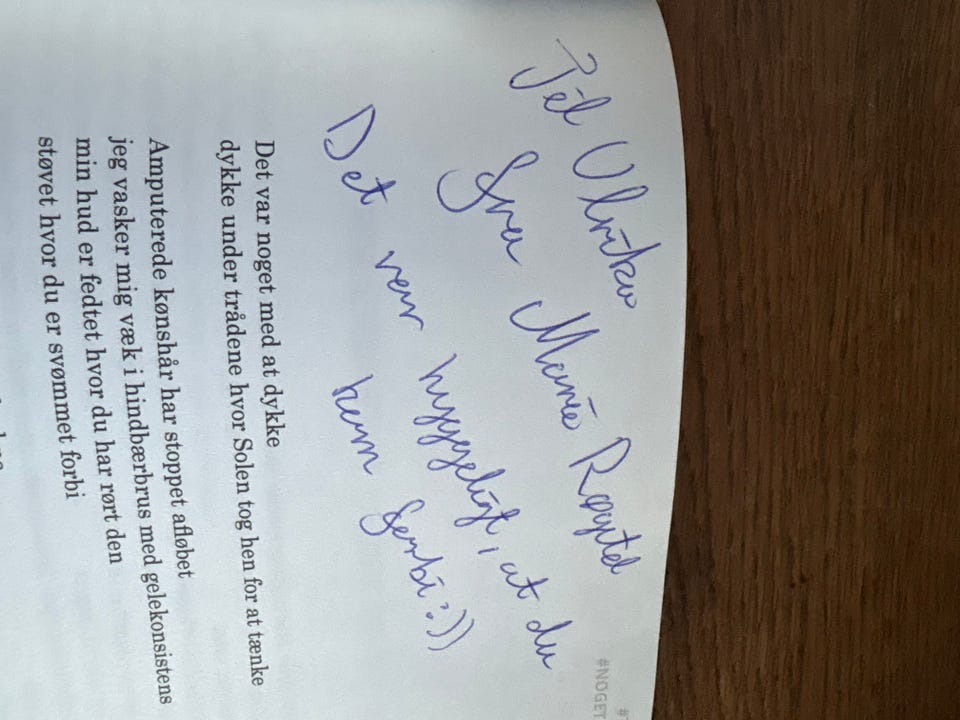 #NOGET
Til
Fra Marie
Det var hyggeligt, at du
kom forbi :))
Det var noget med at dykke
dykke under trådene hvor Solen tog hen for at tænke
Amputerede kønshår har stoppet afløbet
jeg vasker mig væk i hindbærbrus med gelekonsistens
min hud er fedtet hvor du har rørt den
støvet hvor du er svømmet forbi